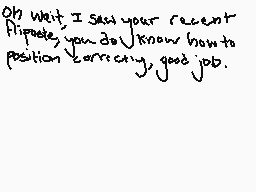 Oh wait, I saw your recent
flipnote, you do know how to
position correctly, good job.